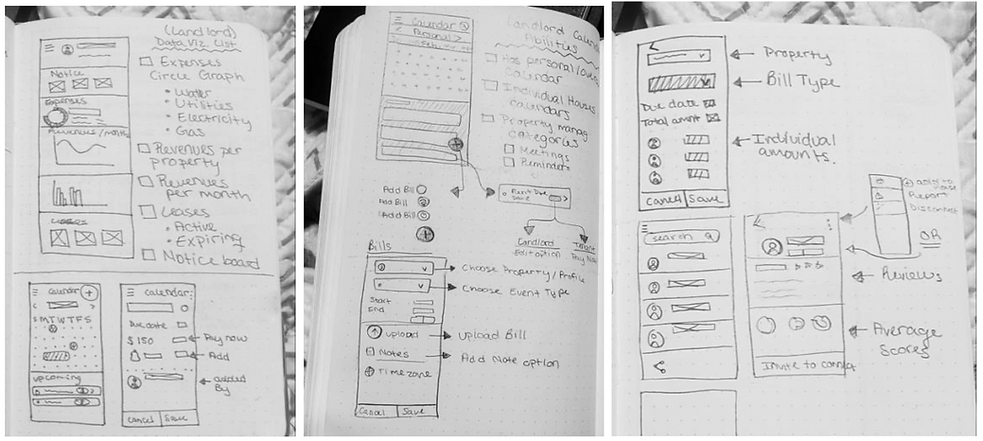 (Landlord)
Data Viz. List
Notice
Expenses
Revenues/month
☐ Expenses
Circle Graph
• Water
• Utilities
• Electricity
• Gas
☐ Revenues per
property
☐ Revenues
per month
☐ Leases
• Active
• Expiring
☐ Notice board
Calendar
S M T W T F S
upcoming
Calendar
Due date
$150
Pay now
Add
added
By
Cancel Save
Calendar
Personal >
Landlord
Abilities
☐ Has personal
calendar
☐ Individual House
calendars
☐ Property manag
categories
☐ Meetings
☐ Reminders
Add Bill
Add Bill
Add Bill
Rent Due
Landlord
Edit option
Pay Now
Bills
Choose Property/Profile
Choose Event Type
Start
End
upload
upload Bill
Notes
Add Note option
Time zone
Cancel Save
Property
Bill Type
Due date
Total amnt
Individual
amounts.
Cancel Save
search
Report
OR
Reviews
Average
Scores
Invite to connect